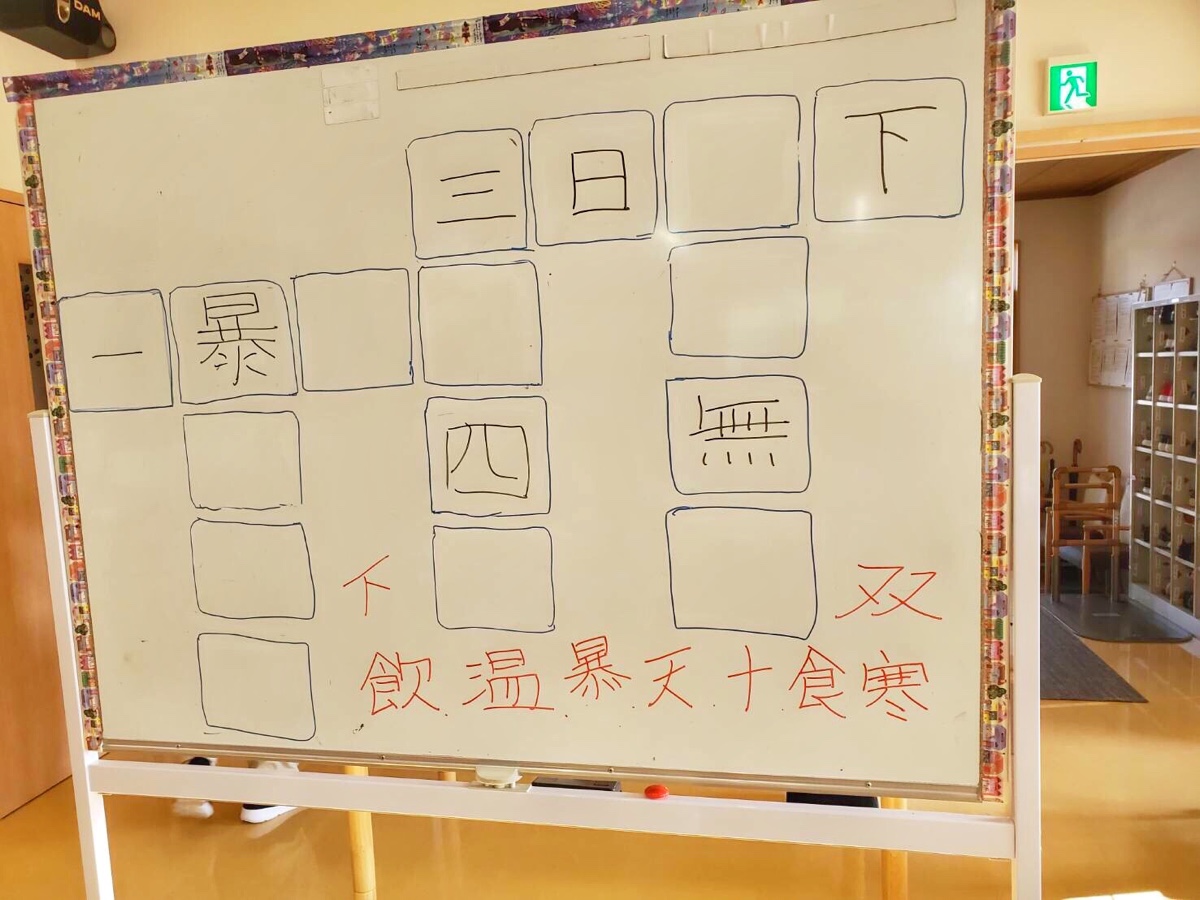 DAM
三日 下
一暴
四 無
下 双
飲温暴天十食寒